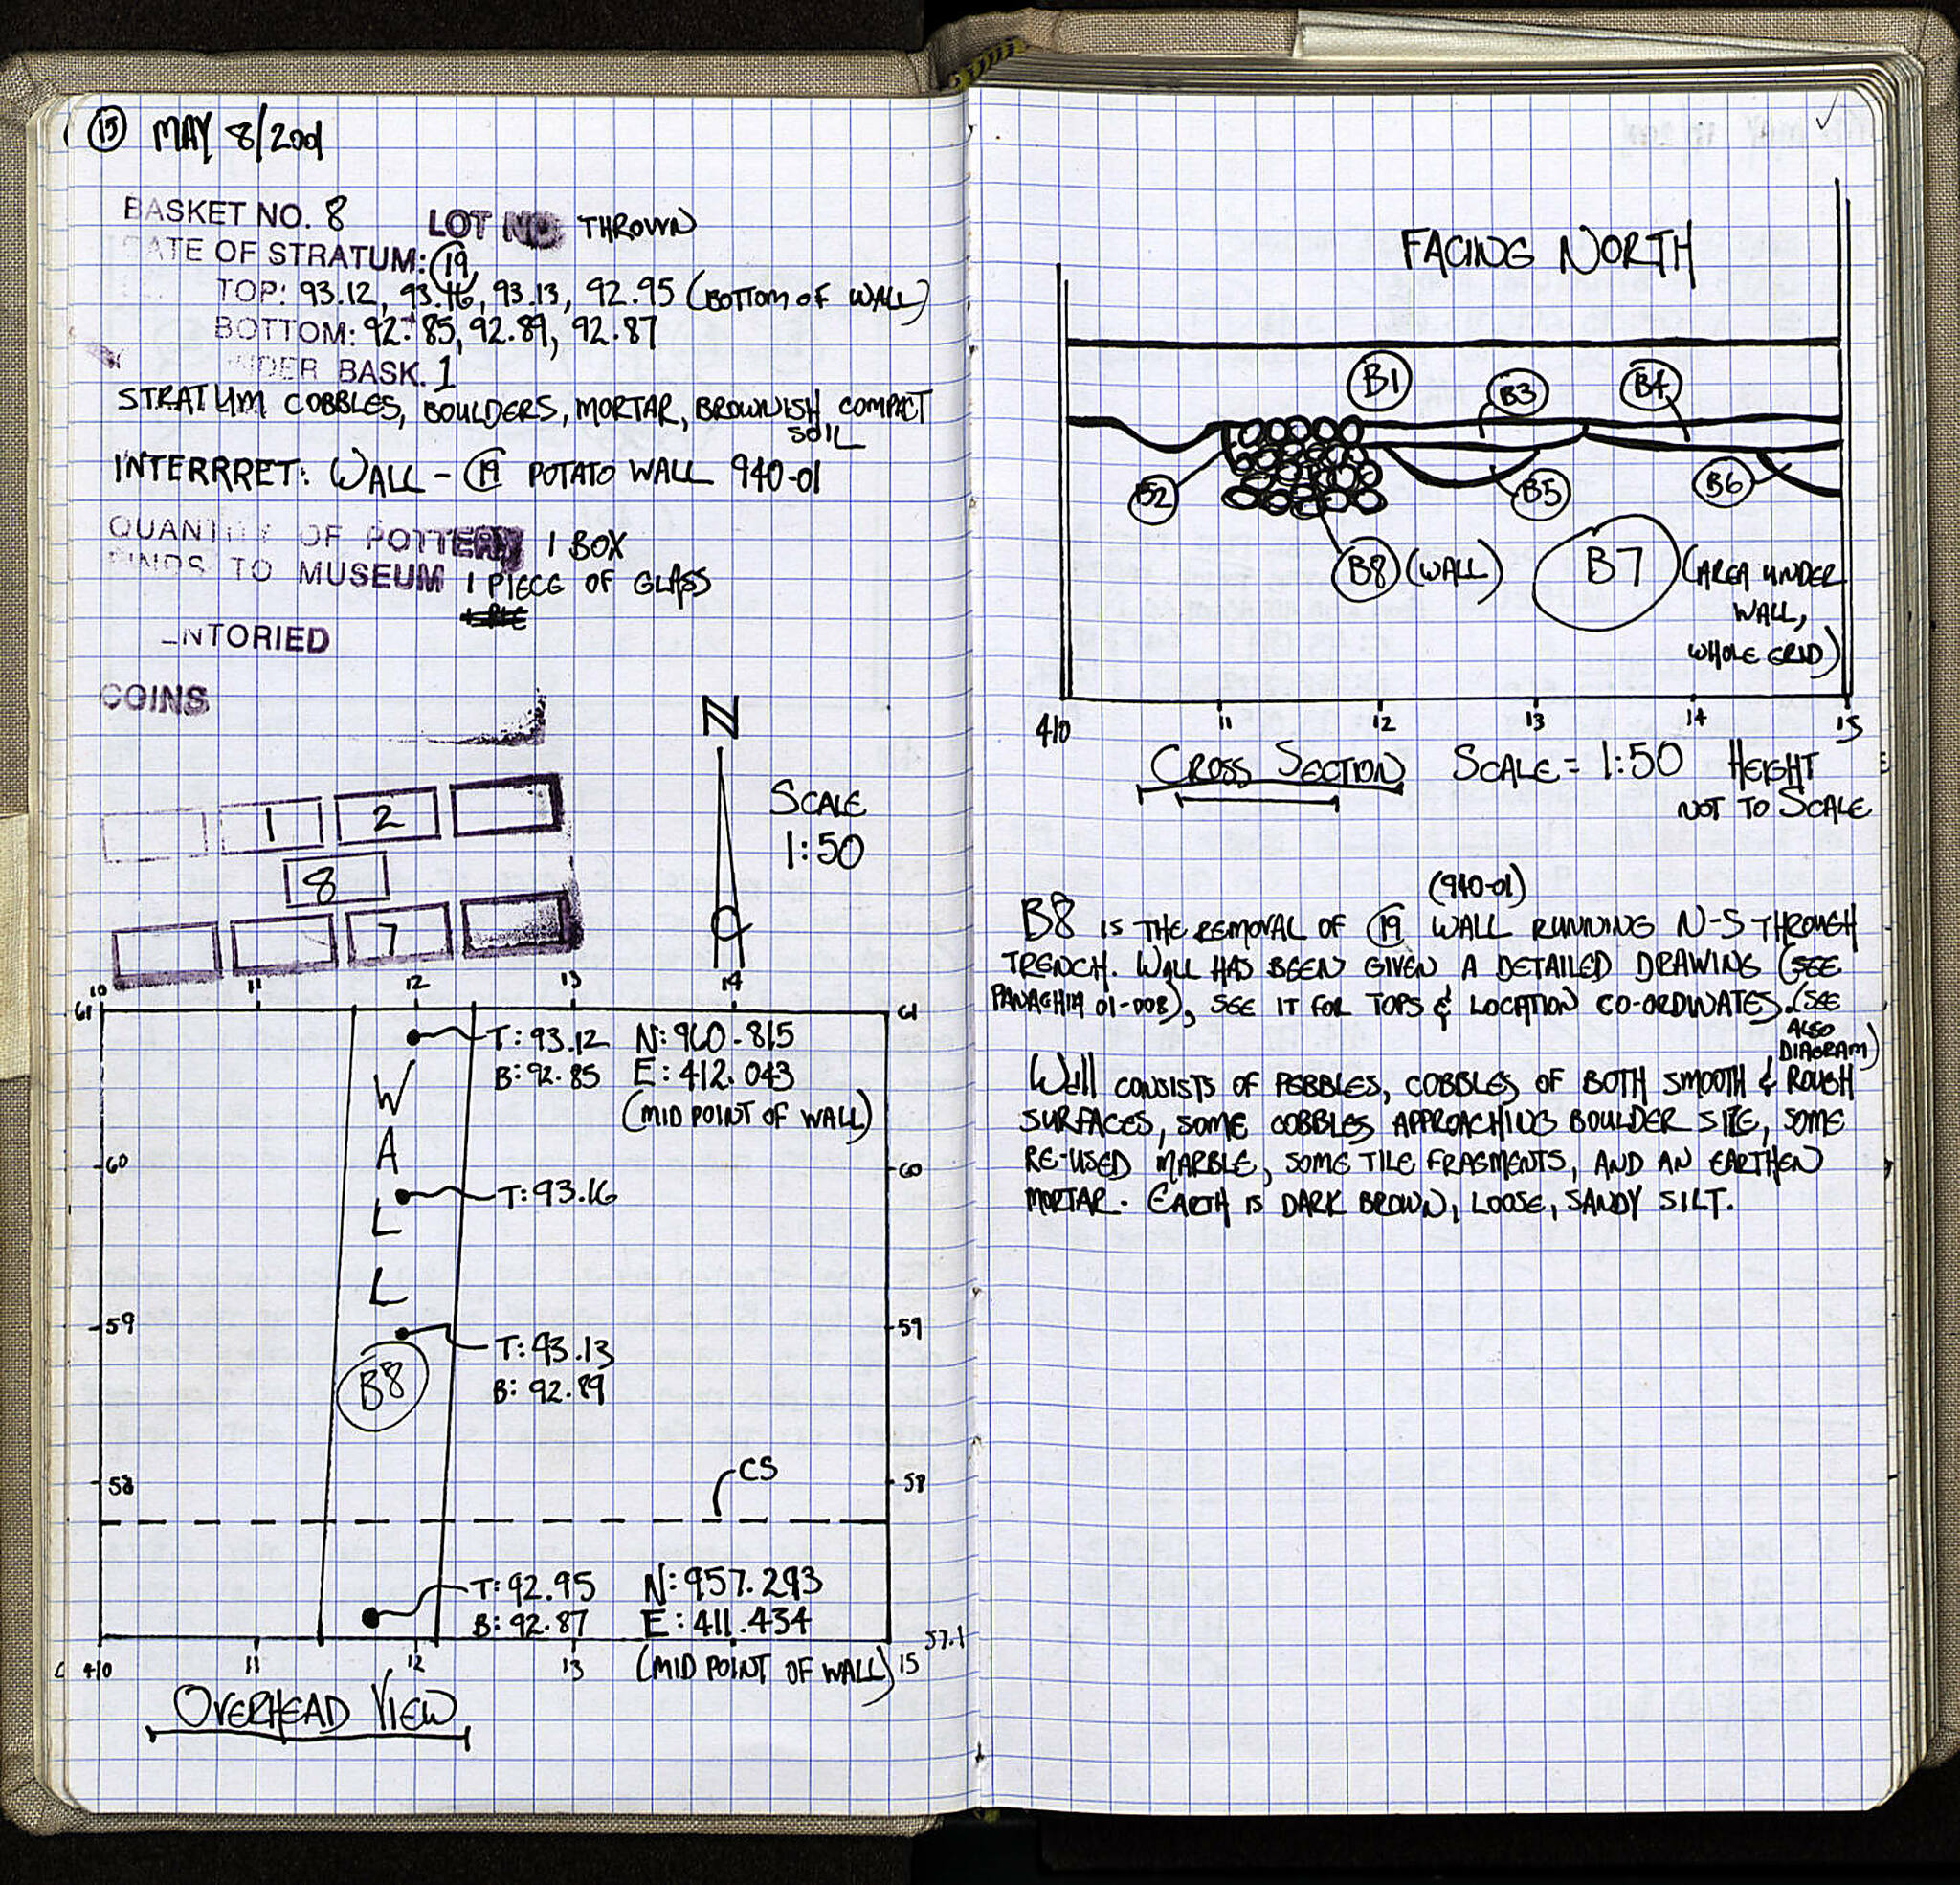 15 MAY 8/2001
BASKET NO. 8 LOT NO THROWN
DATE OF STRATUM: 19
TOP: 93.12, 93.16, 93.13, 92.95 (BOTTOM OF WALL)
BOTTOM: 92.85, 92.89, 92.87
UNDER BASK. 1
STRATUM COBBLES, BOULDERS, MORTAR, BROWNISH COMPACT
SOIL
INTERRRET: WALL - 19 POTATO WALL 940-01
QUANTITY OF POTTERY 1 BOX
FINDS TO MUSEUM 1 PIECE OF GLASS
ENTORIED
COINS
N
SCALE
1:50
1 2
8
7
10 11 12 13 14
61 61
T: 93.12 N: 960.815
B: 92.85 E: 412.043
(MID POINT OF WALL)
WALL
60 60
T: 93.16
59 59
T: 93.13
B: 92.89
B8
CS
58 58
T: 92.95 N: 957.293
B: 92.87 E: 411.434
57.1
410 11 12 13 (MID POINT OF WALL) 15
OVERHEAD VIEW
FACING NORTH
B1 B3 B4
B2 B5 B6
B8 (WALL) B7 (AREA UNDER
WALL,
WHOLE GRID)
410 11 12 13 14 15
CROSS SECTION SCALE = 1:50 HEIGHT
NOT TO SCALE
(940-01)
B8 IS THE REMOVAL OF 19 WALL RUNNING N-S THROUGH
TRENCH. WALL HAS BEEN GIVEN A DETAILED DRAWING (SEE
PANAGHIA 01-008), SEE IT FOR TOPS & LOCATION CO-ORDINATES. (SEE
ALSO
DIAGRAM)
WALL CONSISTS OF PEBBLES, COBBLES OF BOTH SMOOTH & ROUGH
SURFACES, SOME COBBLES APPROACHING BOULDER SIZE, SOME
RE-USED MARBLE, SOME TILE FRAGMENTS, AND AN EARTHEN
MORTAR. EARTH IS DARK BROWN, LOOSE, SANDY SILT.